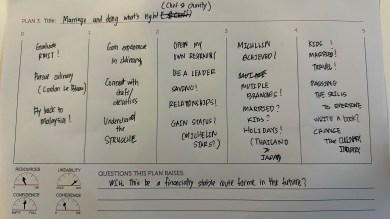 (Chef & charity)
PLAN 3. Title: Marriage and doing what's right
0 1 2 3 4 5
Graduate
RMIT!
Pursue culinary
(Cordon Le Bleu)
Fly back to
Malaysia!
Gain experience
in culinary
Connect with
chefs/
charities
Understand the
STRUGGLE
OPEN MY
OWN RESTAURANT
BE A LEADER
SAVING!
RELATIONSHIPS!
GAIN STATUS!
(MICHELIN
STARS?)
MICHELIN
ACHIEVED!
MUTIPLE
BRANCHES!
MARRIED?
KIDS?
HOLIDAYS!
(THAILAND
JAPAN
KIDS!
MARRIED!
TRAVEL!
PASSING
THE SKILLS
TO EVERYONE
WRITE A BOOK?
CHANGE
THE CULINARY
INDUSTRY
RESOURCES
LIKABILITY
CONFIDENCE
COHERENCE
QUESTIONS THIS PLAN RAISES:
Will this be a financially stable route for me in the future?